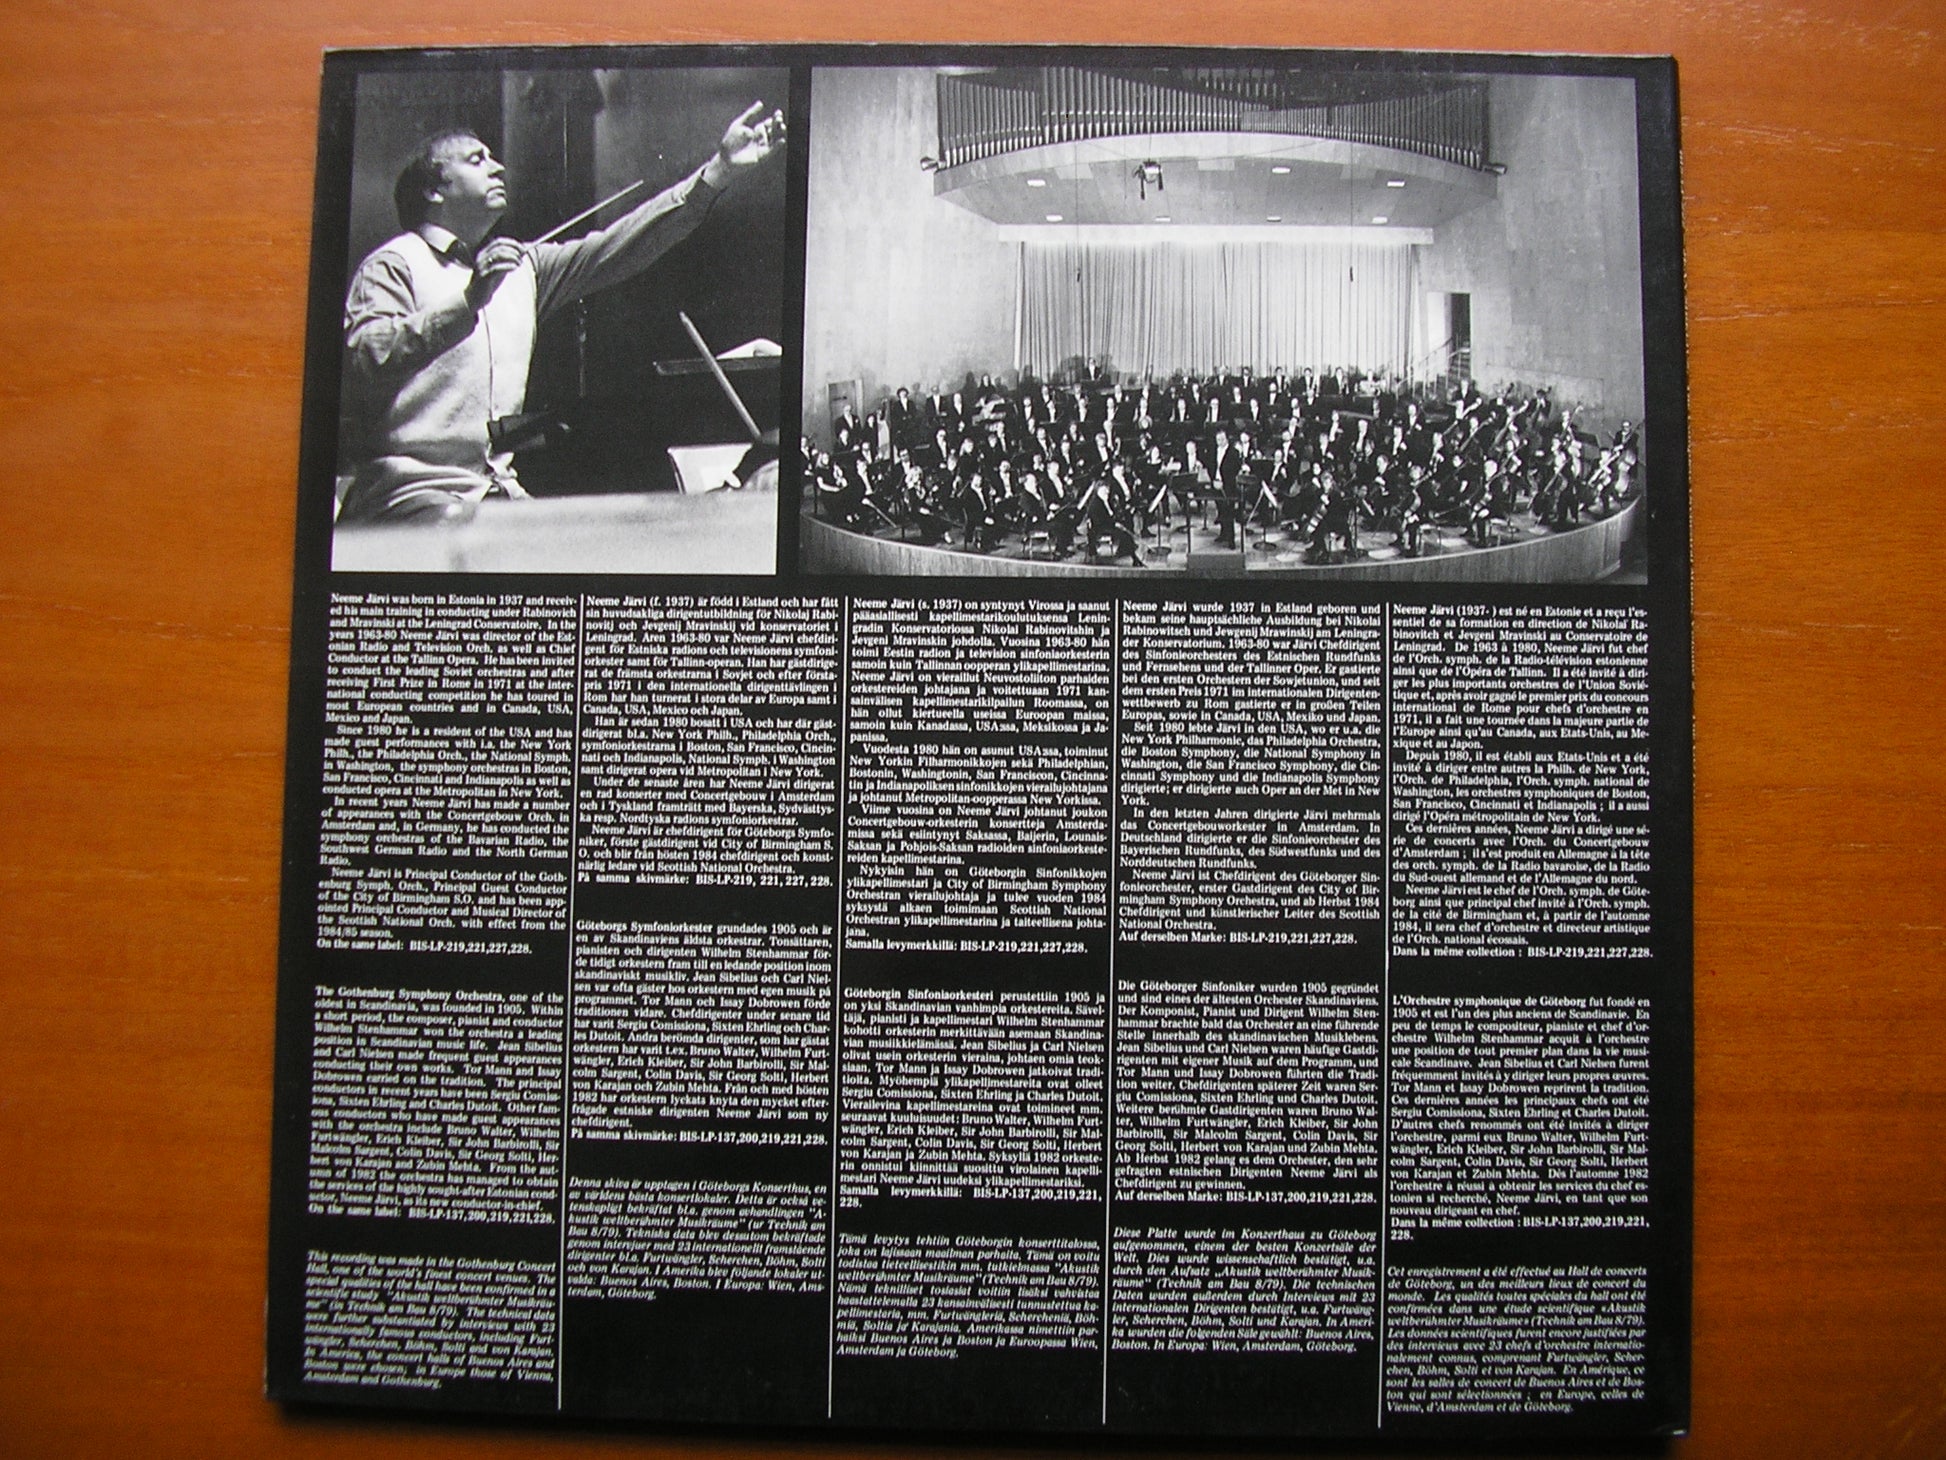 Neeme Järvi was born in Estonia in 1937 and receiv-
ed his main training in conducting under Rabinovich
and Mravinski at the Leningrad Conservatoire. In the
years 1963-80 Neeme Järvi was director of the Est-
onian Radio and Television Orch. as well as Chief
Conductor at the Tallinn Opera. He has been invited
to conduct the leading Soviet orchestras and after
receiving First Prize in Rome in 1971 at the inter-
national conducting competition he has toured in
most European countries and in Canada, USA,
Mexico and Japan.
Since 1980 he is a resident of the USA and has
made guest performances with i.a. the New York
Philh., the Philadelphia Orch., the National Symph.
in Washington, the symphony orchestras in Boston,
San Francisco, Cincinnati and Indianapolis as well as
conducted opera at the Metropolitan in New York.
In recent years Neeme Järvi has made a number
of appearances with the Concertgebouw Orch. in
Amsterdam and, in Germany, he has conducted the
symphony orchestras of the Bavarian Radio, the
Southwest German Radio and the North German
Radio.
Neeme Järvi is Principal Conductor of the Goth-
enburg Symph. Orch., Principal Guest Conductor
of the City of Birmingham S.O. and has been app-
ointed Principal Conductor and Musical Director of
the Scottish National Orch. with effect from the
1984/85 season.
On the same label: BIS-LP-219,221,227,228.
The Gothenburg Symphony Orchestra, one of the
oldest in Scandinavia, was founded in 1905. Within
a short period, the composer, pianist and conductor
Wilhelm Stenhammar won the orchestra a leading
position in Scandinavian music life. Jean Sibelius
and Carl Nielsen made frequent guest appearances
conducting their own works. Tor Mann and Issay
Dobrowen carried on the tradition. The principal
conductors in recent years have been Sergiu Comiss-
iona, Sixten Ehrling and Charles Dutoit. Other fam-
ous conductors who have made guest appearances
with the orchestra include Bruno Walter, Wilhelm
Furtwängler, Erich Kleiber, Sir John Barbirolli, Sir
Malcolm Sargent, Colin Davis, Sir Georg Solti, Her-
bert von Karajan and Zubin Mehta. From the aut-
umn of 1982 the orchestra has managed to obtain
the services of the highly sought-after Estonian cond-
uctor, Neeme Järvi, as its new conductor-in-chief.
On the same label: BIS-LP-137,200,219,221,228.
This recording was made in the Gothenburg Concert
Hall, one of the world's finest concert venues. The
special qualities of the hall have been confirmed in a
scientific study "Akustik weltberühmter Musikräu-
me" (in Technik am Bau 8/79). The technical data
were further substantiated by interviews with 23
internationally famous conductors, including Furt-
wängler, Scherchen, Böhm, Solti and von Karajan.
In America, the concert halls of Buenos Aires and
Boston were chosen; in Europe those of Vienna,
Amsterdam and Gothenburg.
Neeme Järvi (f. 1937) är född i Estland och har fått
sin huvudsakliga dirigentutbildning för Nikolaj Rabi-
novitj och Jevgenij Mravinskij vid konservatoriet i
Leningrad. Åren 1963-80 var Neeme Järvi chefdiri-
gent för Estniska radions och televisionens symfoni-
orkester samt för Tallinn-operan. Han har gästdirige-
rat de främsta orkestrarna i Sovjet och efter första-
pris 1971 i den internationella dirigenttävlingen i
Rom har han turnerat i stora delar av Europa samt i
Canada, USA, Mexico och Japan.
Han är sedan 1980 bosatt i USA och har där gäst-
dirigerat bl.a. New York Philh., Philadelphia Orch.,
symfoniorkestrarna i Boston, San Francisco, Cincin-
nati och Indianapolis, National Symph. i Washington
samt dirigerat opera vid Metropolitan i New York.
Under de senaste åren har Neeme Järvi dirigerat
en rad konserter med Concertgebouw i Amsterdam
och i Tyskland framträtt med Bayerska, Sydvästtys-
ka resp. Nordtyska radions symfoniorkestrar.
Neeme Järvi är chefdirigent för Göteborgs Symfo-
niker, förste gästdirigent vid City of Birmingham S.
O. och blir från hösten 1984 chefdirigent och konst-
närlig ledare vid Scottish National Orchestra.
På samma skivmärke: BIS-LP-219, 221, 227, 228.
Göteborgs Symfoniorkester grundades 1905 och är
en av Skandinaviens äldsta orkestrar. Tonsättaren,
pianisten och dirigenten Wilhelm Stenhammar för-
de tidigt orkestern fram till en ledande position inom
skandinaviskt musikliv. Jean Sibelius och Carl Niel-
sen var ofta gäster hos orkestern med egen musik på
programmet. Tor Mann och Issay Dobrowen förde
traditionen vidare. Chefdirigenter under senare tid
har varit Sergiu Comissiona, Sixten Ehrling och Char-
les Dutoit. Andra berömda dirigenter, som har gästat
orkestern har varit t.ex. Bruno Walter, Wilhelm Furt-
wängler, Erich Kleiber, Sir John Barbirolli, Sir Mal-
colm Sargent, Colin Davis, Sir Georg Solti, Herbert
von Karajan och Zubin Mehta. Från och med hösten
1982 har orkestern lyckats knyta den mycket efter-
frågade estniske dirigenten Neeme Järvi som ny
chefdirigent.
På samma skivmärke: BIS-LP-137,200,219,221,228.
Denna skiva är upptagen i Göteborgs Konserthus, en
av världens bästa konsertlokaler. Detta är också ve-
tenskapligt bekräftat bl.a. genom avhandlingen "A-
kustik weltberühmter Musikräume" (ur Technik am
Bau 8/79). Tekniska data blev dessutom bekräftade
genom intervjuer med 23 internationellt framstående
dirigenter bl.a. Furtwängler, Scherchen, Böhm, Solti
och von Karajan. I Amerika blev följande lokaler ut-
valda: Buenos Aires, Boston. I Europa: Wien, Ams-
terdam, Göteborg.
Neeme Järvi (s. 1937) on syntynyt Virossa ja saanut
pääasiallisesti kapellimestarikoulutuksensa Lenin-
gradin Konservatoriossa Nikolai Rabinovitshin ja
Jevgeni Mravinskin johdolla. Vuosina 1963-80 hän
toimi Eestin radion ja television sinfoniaorkesterin
samoin kuin Tallinnan oopperan ylikapellimestarina.
Neeme Järvi on vieraillut Neuvostoliiton parhaiden
orkestereiden johtajana ja voitettuaan 1971 kan-
sainvälisen kapellimestarikilpailun Roomassa, on
hän ollut kiertueella useissa Euroopan maissa,
samoin kuin Kanadassa, USA:ssa, Meksikossa ja Ja-
panissa.
Vuodesta 1980 hän on asunut USA:ssa, toiminut
New Yorkin Filharmonikkojen sekä Philadelphian,
Bostonin, Washingtonin, San Franciscon, Cincinna-
tin ja Indianapoliksen sinfonikkojen vierailujohtajana
ja johtanut Metropolitan-oopperassa New Yorkissa.
Viime vuosina on Neeme Järvi johtanut joukon
Concertgebouw-orkesterin konsertteja Amsterda-
missa sekä esiintynyt Saksassa, Baijerin, Lounais-
Saksan ja Pohjois-Saksan radioiden sinfoniaorkeste-
reiden kapellimestarina.
Nykyisin hän on Göteborgin Sinfonikkojen
ylikapellimestari ja City of Birmingham Symphony
Orchestran vierailujohtaja ja tulee vuoden 1984
syksystä alkaen toimimaan Scottish National
Orchestran ylikapellimestarina ja taiteellisena johta-
jana.
Samalla levymerkkillä: BIS-LP-219,221,227,228.
Göteborgin Sinfoniaorkesteri perustettiin 1905 ja
on yksi Skandinavian vanhimpia orkestereita. Sävel-
täjä, pianisti ja kapellimestari Wilhelm Stenhammar
kohotti orkesterin merkittävään asemaan Skandina-
vian musiikkielämässä. Jean Sibelius ja Carl Nielsen
olivat usein orkesterin vieraina, johtaen omia teok-
siaan. Tor Mann ja Issay Dobrowen jatkoivat tradi-
tioita. Myöhempiä ylikapellimestareita ovat olleet
Sergiu Comissiona, Sixten Ehrling ja Charles Dutoit.
Vierailevina kapellimestareina ovat toimineet mm.
seuraavat kuuluisuudet: Bruno Walter, Wilhelm Furt-
wängler, Erich Kleiber, Sir John Barbirolli, Sir Mal-
colm Sargent, Colin Davis, Sir Georg Solti, Herbert
von Karajan ja Zubin Mehta. Syksyllä 1982 orkeste-
rin onnistui kiinnittää suosittu virolainen kapelli-
mestari Neeme Järvi uudeksi ylikapellimestariksi.
Samalla levymerkkillä: BIS-LP-137,200,219,221,
228.
Tämä levytys tehtiin Göteborgin konserttitalossa,
joka on lajissaan maailman parhaita. Tämä on voitu
todistaa tieteellisestikin mm. tutkielmassa "Akustik
weltberühmter Musikräume" (Technik am Bau 8/79).
Nämä teknilliset tosiasiat voitiin lisäksi vahvistaa
haastattelemalla 23 kansainvälisesti tunnustettua ka-
pellimestaria, mm. Furtwängleria, Schercheniä, Böh-
miä, Soltia ja Karajania. Amerikassa nimettiin par-
haiksi Buenos Aires ja Boston ja Euroopassa Wien,
Amsterdam ja Göteborg.
Neeme Järvi wurde 1937 in Estland geboren und
bekam seine hauptsächliche Ausbildung bei Nikolai
Rabinowitsch und Jewgenij Mrawinskij am Leningra-
der Konservatorium. 1963-80 war Järvi Chefdirigent
des Sinfonieorchesters des Estnischen Rundfunks
und Fernsehens und der Tallinner Oper. Er gastierte
bei den ersten Orchestern der Sowjetunion, und seit
dem ersten Preis 1971 im internationalen Dirigenten-
wettbewerb zu Rom gastierte er in großen Teilen
Europas, sowie in Canada, USA, Mexiko und Japan.
Seit 1980 lebte Järvi in den USA, wo er u.a. die
New York Philharmonic, das Philadelphia Orchestra,
die Boston Symphony, die National Symphony in
Washington, die San Francisco Symphony, die Cin-
cinnati Symphony und die Indianapolis Symphony
dirigierte; er dirigierte auch Oper an der Met in New
York.
In den letzten Jahren dirigierte Järvi mehrmals
das Concertgebouworkester in Amsterdam. In
Deutschland dirigierte er die Sinfonieorchester des
Bayerischen Rundfunks, des Südwestfunks und des
Norddeutschen Rundfunks.
Neeme Järvi ist Chefdirigent des Göteborger Sin-
fonieorchester, erster Gastdirigent des City of Bir-
mingham Symphony Orchestra, und ab Herbst 1984
Chefdirigent und künstlerischer Leiter des Scottish
National Orchestra.
Auf derselben Marke: BIS-LP-219,221,227,228.
Die Göteborger Sinfoniker wurden 1905 gegründet
und sind eines der ältesten Orchester Skandinaviens.
Der Komponist, Pianist und Dirigent Wilhelm Sten-
hammar brachte bald das Orchester an eine führende
Stelle innerhalb des skandinavischen Musiklebens.
Jean Sibelius und Carl Nielsen waren häufige Gastdi-
rigenten mit eigener Musik auf dem Programm, und
Tor Mann und Issay Dobrowen führten die Tradi-
tion weiter. Chefdirigenten späterer Zeit waren Ser-
giu Comissiona, Sixten Ehrling und Charles Dutoit.
Weitere berühmte Gastdirigenten waren Bruno Wal-
ter, Wilhelm Furtwängler, Erich Kleiber, Sir John
Barbirolli, Sir Malcolm Sargent, Colin Davis, Sir
Georg Solti, Herbert von Karajan und Zubin Mehta.
Ab Herbst 1982 gelang es dem Orchester, den sehr
gefragten estnischen Dirigenten Neeme Järvi als
Chefdirigent zu gewinnen.
Auf derselben Marke: BIS-LP-137,200,219,221,228.
Diese Platte wurde im Konzerthaus zu Göteborg
aufgenommen, einem der besten Konzertsäle der
Welt. Dies wurde wissenschaftlich bestätigt, u.a.
durch den Aufsatz „Akustik weltberühmter Musik-
räume" (Technik am Bau 8/79). Die technischen
Daten wurden außerdem durch Interviews mit 23
internationalen Dirigenten bestätigt, u.a. Furtwäng-
ler, Scherchen, Böhm, Solti und Karajan. In Ameri-
ka wurden die folgenden Säle gewählt: Buenos Aires,
Boston. In Europa: Wien, Amsterdam, Göteborg.
Neeme Järvi (1937- ) est né en Estonie et a reçu l'es-
sentiel de sa formation en direction de Nikolaï Ra-
binovitch et Jevgeni Mravinski au Conservatoire de
Leningrad. De 1963 à 1980, Neeme Järvi fut chef
de l'Orch. symph. de la Radio-télévision estonienne
ainsi que de l'Opéra de Tallinn. Il a été invité à diri-
ger les plus importants orchestres de l'Union Sovié-
tique et, après avoir gagné le premier prix du concours
international de Rome pour chefs d'orchestre en
1971, il a fait une tournée dans la majeure partie de
l'Europe ainsi qu'au Canada, aux Etats-Unis, au Me-
xique et au Japon.
Depuis 1980, il est établi aux Etats-Unis et a été
invité à diriger entre autres la Philh. de New York,
l'Orch. de Philadelphia, l'Orch. symph. national de
Washington, les orchestres symphoniques de Boston,
San Francisco, Cincinnati et Indianapolis ; il a aussi
dirigé l'Opéra métropolitain de New York.
Ces dernières années, Neeme Järvi a dirigé une sé-
rie de concerts avec l'Orch. du Concertgebouw
d'Amsterdam ; il s'est produit en Allemagne à la tête
des orch. symph. de la Radio bavaroise, de la Radio
du Sud-ouest allemand et de l'Allemagne du nord.
Neeme Järvi est le chef de l'Orch. symph. de Göte-
borg ainsi que principal chef invité à l'Orch. symph.
de la cité de Birmingham et, à partir de l'automne
1984, il sera chef d'orchestre et directeur artistique
de l'Orch. national écossais.
Dans la même collection : BIS-LP-219,221,227,228.
L'Orchestre symphonique de Göteborg fut fondé en
1905 et est l'un des plus anciens de Scandinavie. En
peu de temps le compositeur, pianiste et chef d'or-
chestre Wilhelm Stenhammar acquit à l'orchestre
une position de tout premier plan dans la vie musi-
cale Scandinave. Jean Sibelius et Carl Nielsen furent
fréquemment invités à y diriger leurs propres œuvres.
Tor Mann et Issay Dobrowen reprirent la tradition.
Ces dernières années les principaux chefs ont été
Sergiu Comissiona, Sixten Ehrling et Charles Dutoit.
D'autres chefs renommés ont été invités à diriger
l'orchestre, parmi eux Bruno Walter, Wilhelm Furt-
wängler, Erich Kleiber, Sir John Barbirolli, Sir Mal-
colm Sargent, Colin Davis, Sir Georg Solti, Herbert
von Karajan et Zubin Mehta. Dès l'automne 1982
l'orchestre à réussi à obtenir les services du chef es-
tonien si recherché, Neeme Järvi, en tant que son
nouveau dirigeant en chef.
Dans la même collection : BIS-LP-137,200,219,221,
228.
Cet enregistrement a été effectué au Hall de concerts
de Göteborg, un des meilleurs lieux de concert du
monde. Les qualités toutes spéciales du hall ont été
confirmées dans une étude scientifique «Akustik
weltberühmter Musikräume» (Technik am Bau 8/79).
Les données scientifiques furent encore justifiées par
des interviews avec 23 chefs d'orchestre internatio-
nalement connus, comprenant Furtwängler, Scher-
chen, Böhm, Solti et von Karajan. En Amérique, ce
sont les salles de concert de Buenos Aires et de Bos-
ton qui sont sélectionnées ; en Europe, celles de
Vienne, d'Amsterdam et de Göteborg.